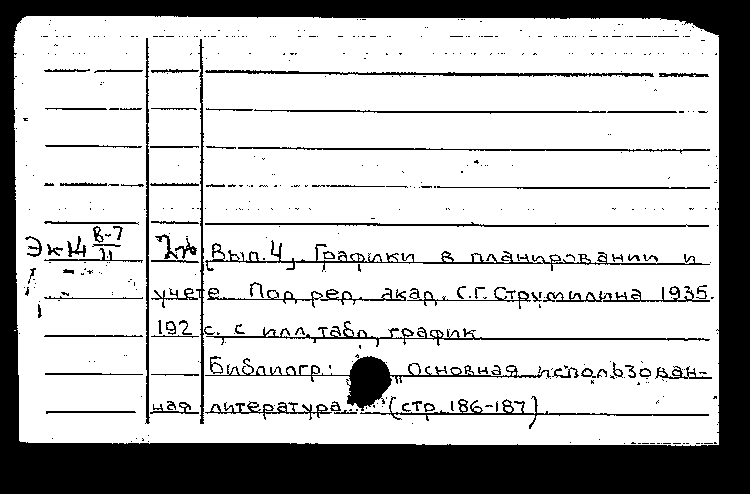 Эк14 В-7/11 2 [Вып. 4]. Графики в планировании и
учете. Под ред. акад. С.Г. Струмилина 1935.
192 с., с илл., табл., график.
Библиогр.: „Основная использован-
ная литература" (стр. 186-187).